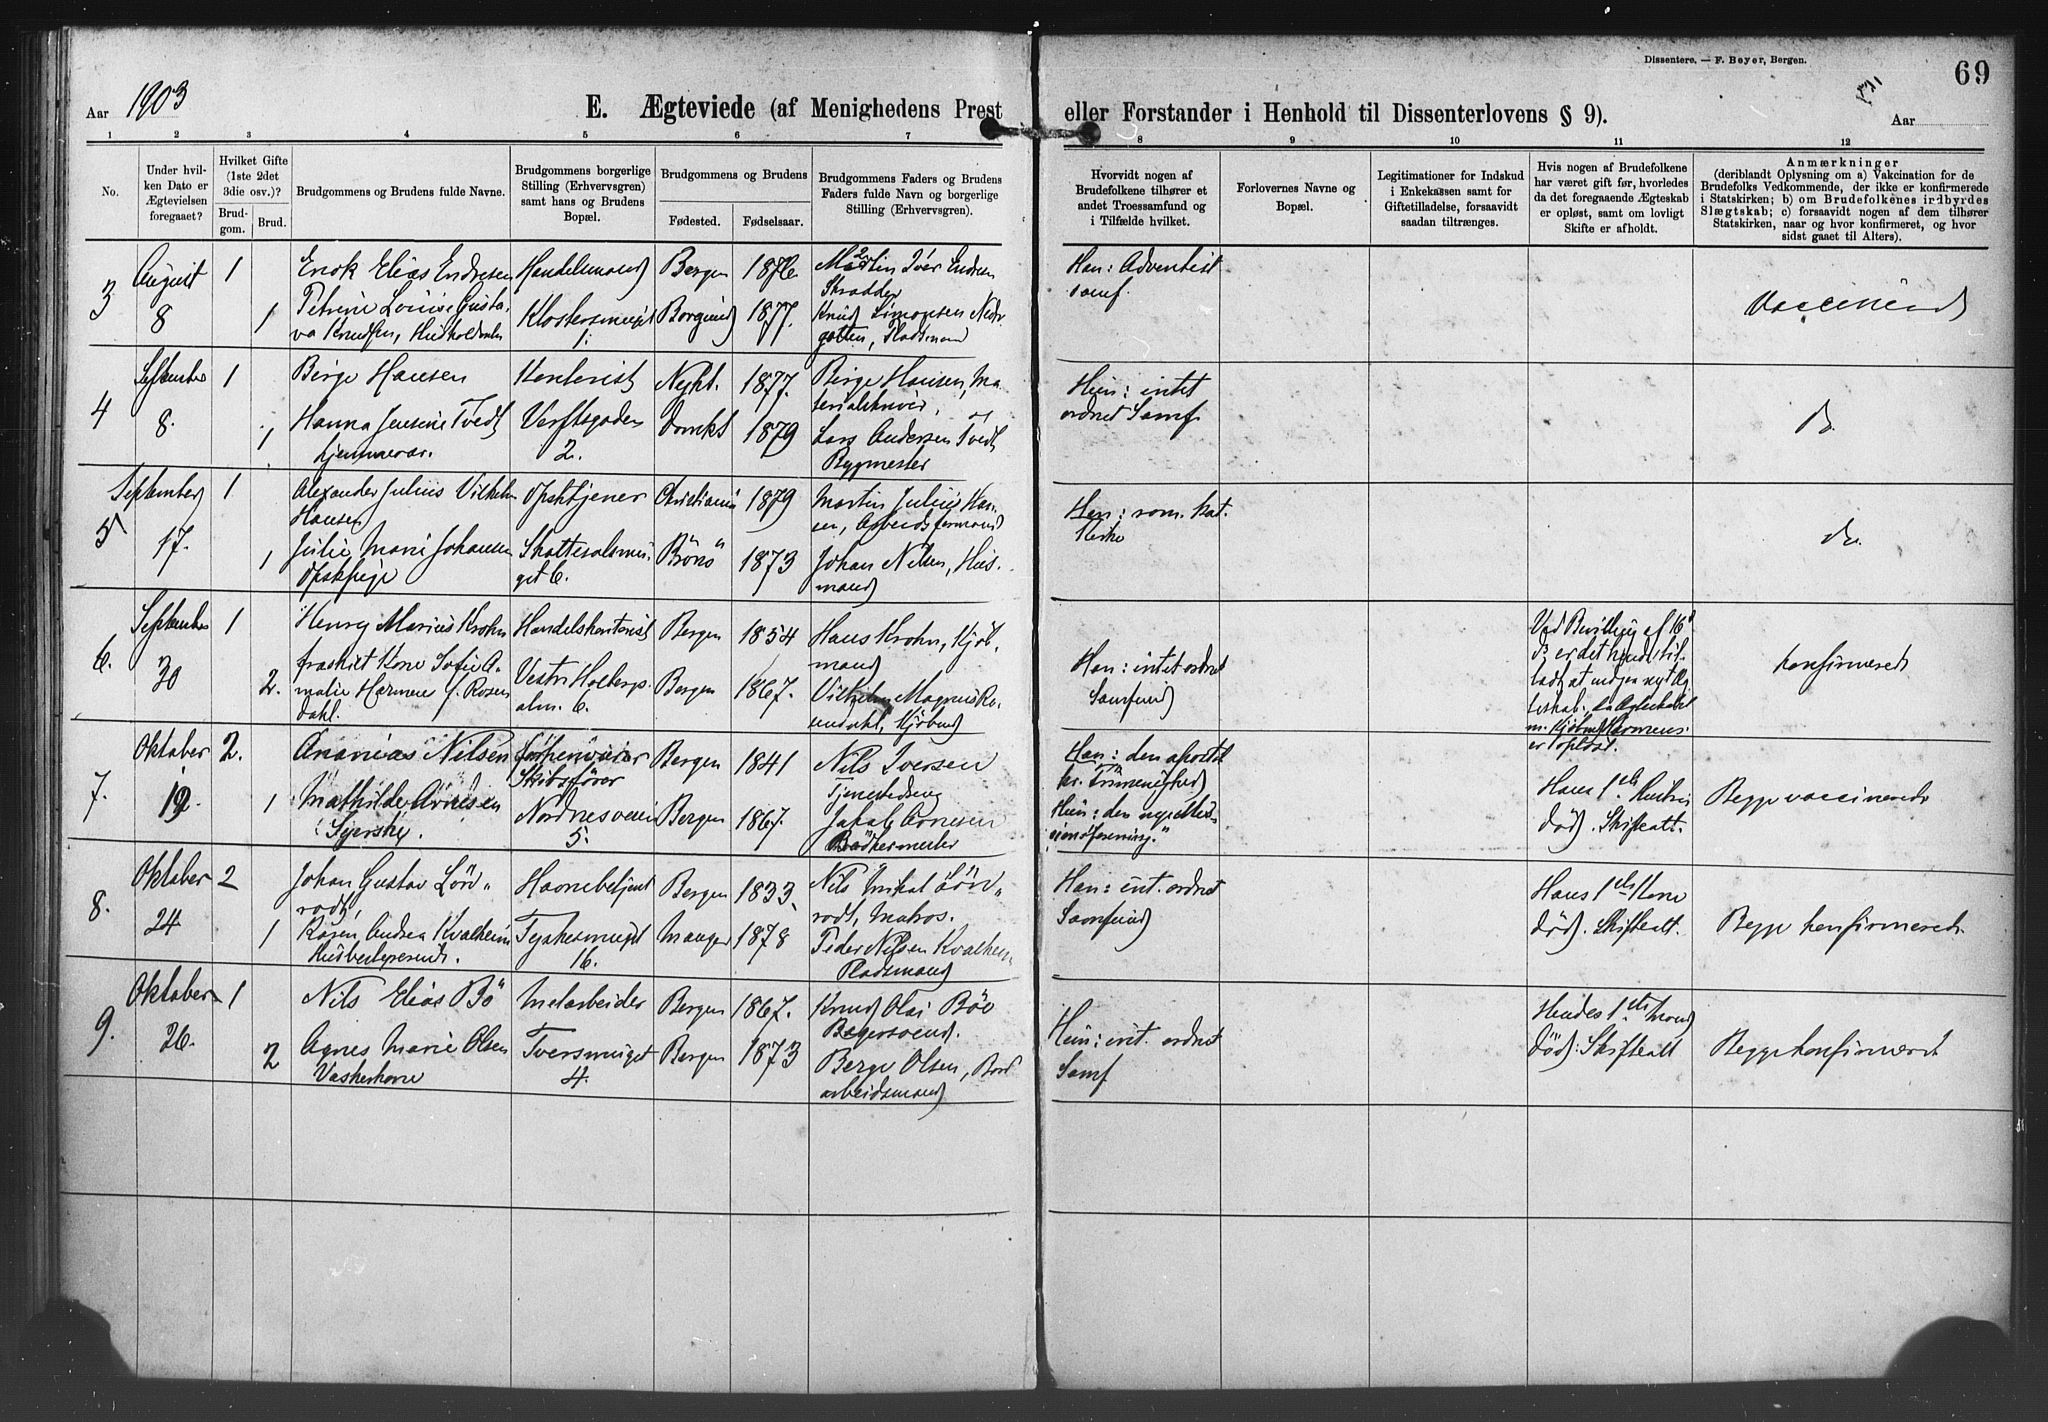 Dissentere. — F. Beyer, Bergen.
69
Aar 1903
E. Ægteviede (af Menighedens Prest eller Forstander i Henhold til Dissenterlovens § 9).
Aar
1 2 3 4 5 6 7 8 9 10 11 12
No.
Under hvil-
ken Dato er
Ægtevielsen
foregaaet?
Hvilket Gifte
(1ste 2det
3die osv.)?
Brud-
gom.
Brud.
Brudgommens og Brudens fulde Navne.
Brudgommens borgerlige
Stilling (Erhvervsgren)
samt hans og Brudens
Bopæl.
Brudgommens og Brudens
Fødested.
Fødselsaar.
Brudgommens Faders og Brudens
Faders fulde Navn og borgerlige
Stilling (Erhvervsgren).
Hvorvidt nogen af
Brudefolkene tilhører et
andet Troessamfund og
i Tilfælde hvilket.
Forlovernes Navne og
Bopæl.
Legitimationer for Indskud
i Enkekassen samt for
Giftetilladelse, forsaavidt
saadan tiltrænges.
Hvis nogen af Brudefolkene
har været gift før, hvorledes
da det foregaaende Ægteskab
er opløst, samt om lovligt
Skifte er afholdt.
Anmærkninger
(deriblandt Oplysning om a) Vakcination for de
Brudefolks Vedkommende, der ikke er konfirmerede
i Statskirken; b) om Brudefolkenes indbyrdes
Slægtskab; c) forsaavidt nogen af dem tilhører
Statskirken, naar og hvor konfirmeret, og hvor
sidst gaaet til Alters).
3
August
8
1
1
Enok Elias Endresen
Petrine Louise Gusta-
va Knudsen,
Handelsmand
Klostersmuget
1.
Bergen
Borgund
1876
1877.
Martin Iver Endresen
Skrædder
Knud Simonsen
Pladsmand
Han: Adventist
samf.
Vaccinered
4
September
8.
1
1
Birge Hansen
Hanna Jensine Tvedt
hjemmevær.
Kontorist
Verftsgaden
2.
Nykt.
Domkt
1877.
1879
Birge Hansen, Ma-
terialskriver,
Lars Andersen Tvedt
Bygmester
Hun: intet
ordnet Samf.
Do.
5
September
17.
1
1
Alexander Julius Vilhelm
Hansen
Julie Marie Johansen
Opskpige
Opsktjener
Skottesalsmu-
get 6.
Christiania
Brönö
1879
1873
Martin Julius Han-
sen, Arbeidsformand
Johan Nilsen, Hus-
mand
Han: rom. kat.
Kirke
do.
6.
September
20
1
2.
Henry Marius Krohn
fraskilt Kone Sofie A-
malie Harmens f. Rosen
dahl.
Handelskontorist
Vestre Holbergs-
alm. 6.
Bergen
Bergen
1854
1867.
Hans Krohn, Kjöb-
mand
Vilhelm Magnus Ro-
sendahl, Kjöbmd
Han: intet ordnet
Samfund
Ved Bevilling af 16d
er det hende til-
ladt at indgaa nyt Æg-
teskab, da Ægteskabet
m. Kjöbmd Harmens
er oplöst.
konfirmered
7.
Oktober
12.
2.
1
Ananias Nilsen
Mathilde Arnesen
Syerske.
Skibsförer
Nordnesveien
5.
Bergen
Bergen
1841
1867.
Nils Iversen
Jakob Arnesen
Bödkermester
Han: den apostol.
kr. Frimenighed
Hun: den nye Mis-
sionsforening."
Hans 1ste Hustru
död. Skifteatt.
Begge vaccinerede
8.
Oktober
24
2
1
Johan Gustav Löv-
rodt,
Kvalheim
Husbestyrerinde.
Havnebetjent
Tyskesmuget
16.
Bergen
Manger
1833.
1878
Nils Mikal Löv-
rodt, Matros.
Peder Nilsen Kvalheim
Pladsmand
Han: int. ordnet
Samfund
Hans 1ste Kone
död. Skifteatt.
Begge konfirmerede
9.
Oktober
26.
1
2
Nils Elias Bö
Agnes Marie Olsen
Vaskerkone
Melarbeider
Tversmuget
4.
Bergen
Bergen
1867.
1873
Knud Olai Böe
Bagersvend.
Berge Olsen,
arbeidsmand
Hun: int. ordnet
Samf
Hendes 1ste Mand
död. Skifteatt
Begge konfirmeret